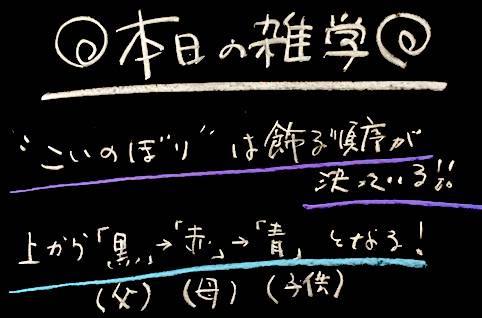 本日の雑学
"こいのぼり"は飾る順序が
決っている!!
上から「黒」→「赤」→「青」となる!
(父) (母) (子供)